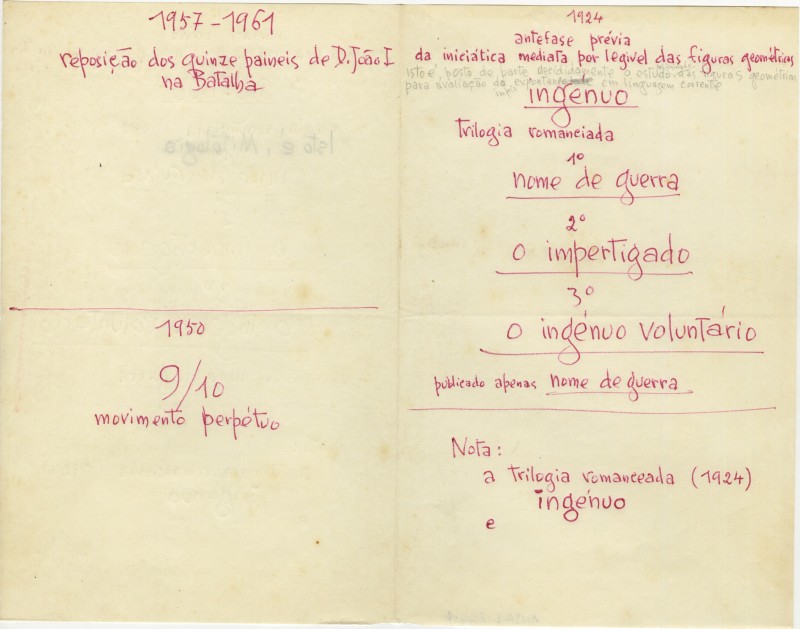 1957-1961
reposição dos quinze paineis de D. João I
na Batalha
1950
9/10
movimento perpétuo
1924
antefase prévia
da iniciática mediata por legivel das figuras geométricas
isto é, posto de parte decididamente o estudo das figuras geométricas
para avaliação da em linguagem corrente
ingénuo
trilogia romanciada
1º
nome de guerra
2º
o impertigado
3º
o ingénuo voluntário
publicado apenas nome de guerra
Nota:
a trilogia romanceada (1924)
ingénuo
e